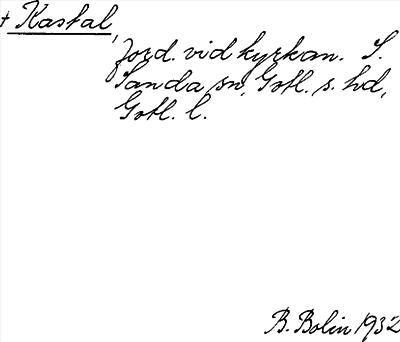 † Kastal,
Jord. vid kyrkan. S.
Sanda sn, Gotl. s. hd,
Gotl. l.
B. Bolin 1932